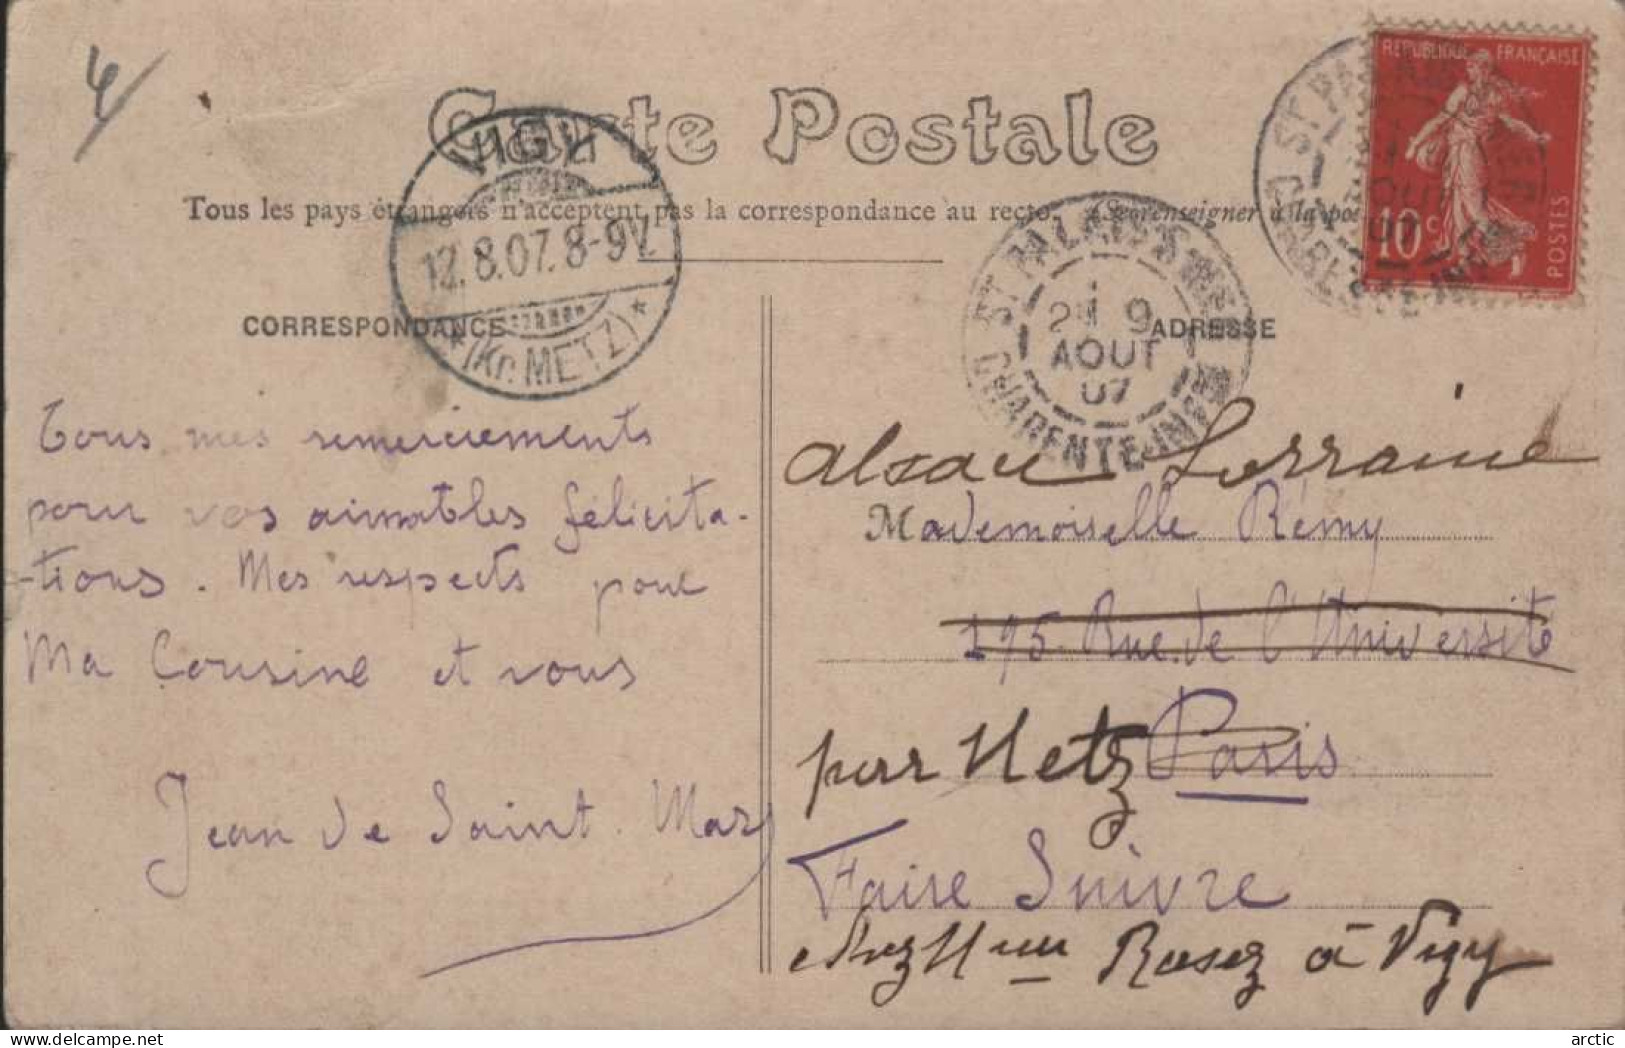 4
Carte Postale
Tous les pays étrangers n'acceptent pas la correspondance au recto. Se renseigner à la poste
VIGY
12.8.07. 8-9V.
*(Kr. METZ)*
ST PALAIS S MER
2E 9
AOUT
07
CHARENTE-INFRE
ST PALAIS S MER
AOUT
07
CHARENTE-INFRE
REPUBLIQUE FRANÇAISE
10c
POSTES
CORRESPONDANCE
Tous mes remerciements
pour vos aimables félicita-
-tions. Mes respects pour
Ma Cousine et vous
Jean de Saint. Mars
ADRESSE
Alsace Lorraine
Mademoiselle Rémy
195 Rue de l'Université
par Metz Paris
Faire Suivre
chez Mme Rosez à Vigy
arctic